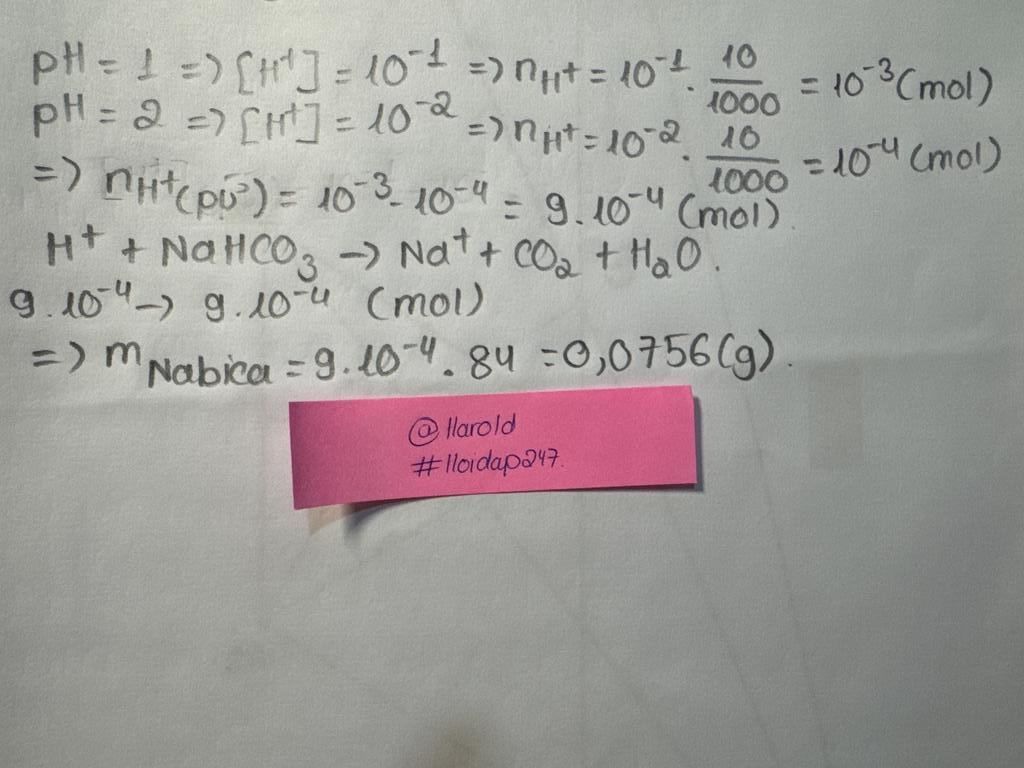 pH = 1 => [H⁺] = 10⁻¹ => nH⁺ = 10⁻¹ . 10/1000 = 10⁻³ (mol)
pH = 2 => [H⁺] = 10⁻² => nH⁺ = 10⁻² . 10/1000 = 10⁻⁴ (mol)
=> nH⁺(pứ) = 10⁻³ - 10⁻⁴ = 9.10⁻⁴ (mol).
H⁺ + NaHCO₃ -> Na⁺ + CO₂ + H₂O.
9.10⁻⁴ -> 9.10⁻⁴ (mol)
=> mNabica = 9.10⁻⁴ . 84 = 0,0756 (g).
@Harold
#lloidap247.